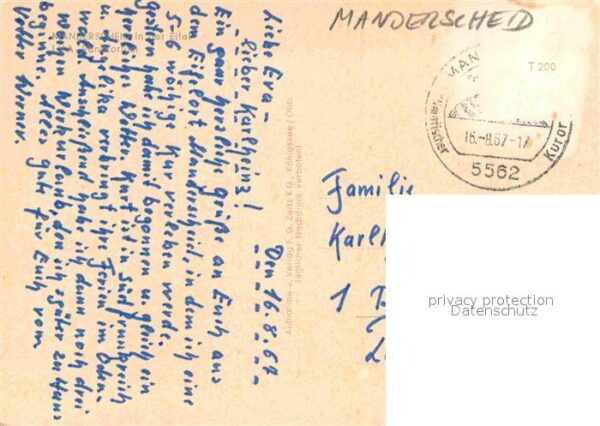 MANDERSCHEID
MANDERSCHEID in der Eifel
LVA Sanatorium
T 200
MAN
Kuror
16.-8.67-17
5562
Den 16.8.67
Liebe Eva-
lieber Karlheinz!
Ein ganz herzliche Grüße an Euch aus
dem Eifelort Manderscheid, in dem ich eine
5-6 wöchige Kur verleben werde.
gestern habe ich damit begonnen u. gleich ein
Wetter. Kurt ist in Südfrankreich
und Angelika verbringt ihre Ferien in
und Anschließend habe ich dann noch drei
Wochen Urlaub, den ich später zu Haus
beginne. Alles gute für Euch vom
Vetter Werner.
Aufnahme u. Verlag F. G. Zeitz K G., Königssee / Obb.
Jeglicher Nachdruck verboten!
Familie
Karl
1
privacy protection
Datenschutz